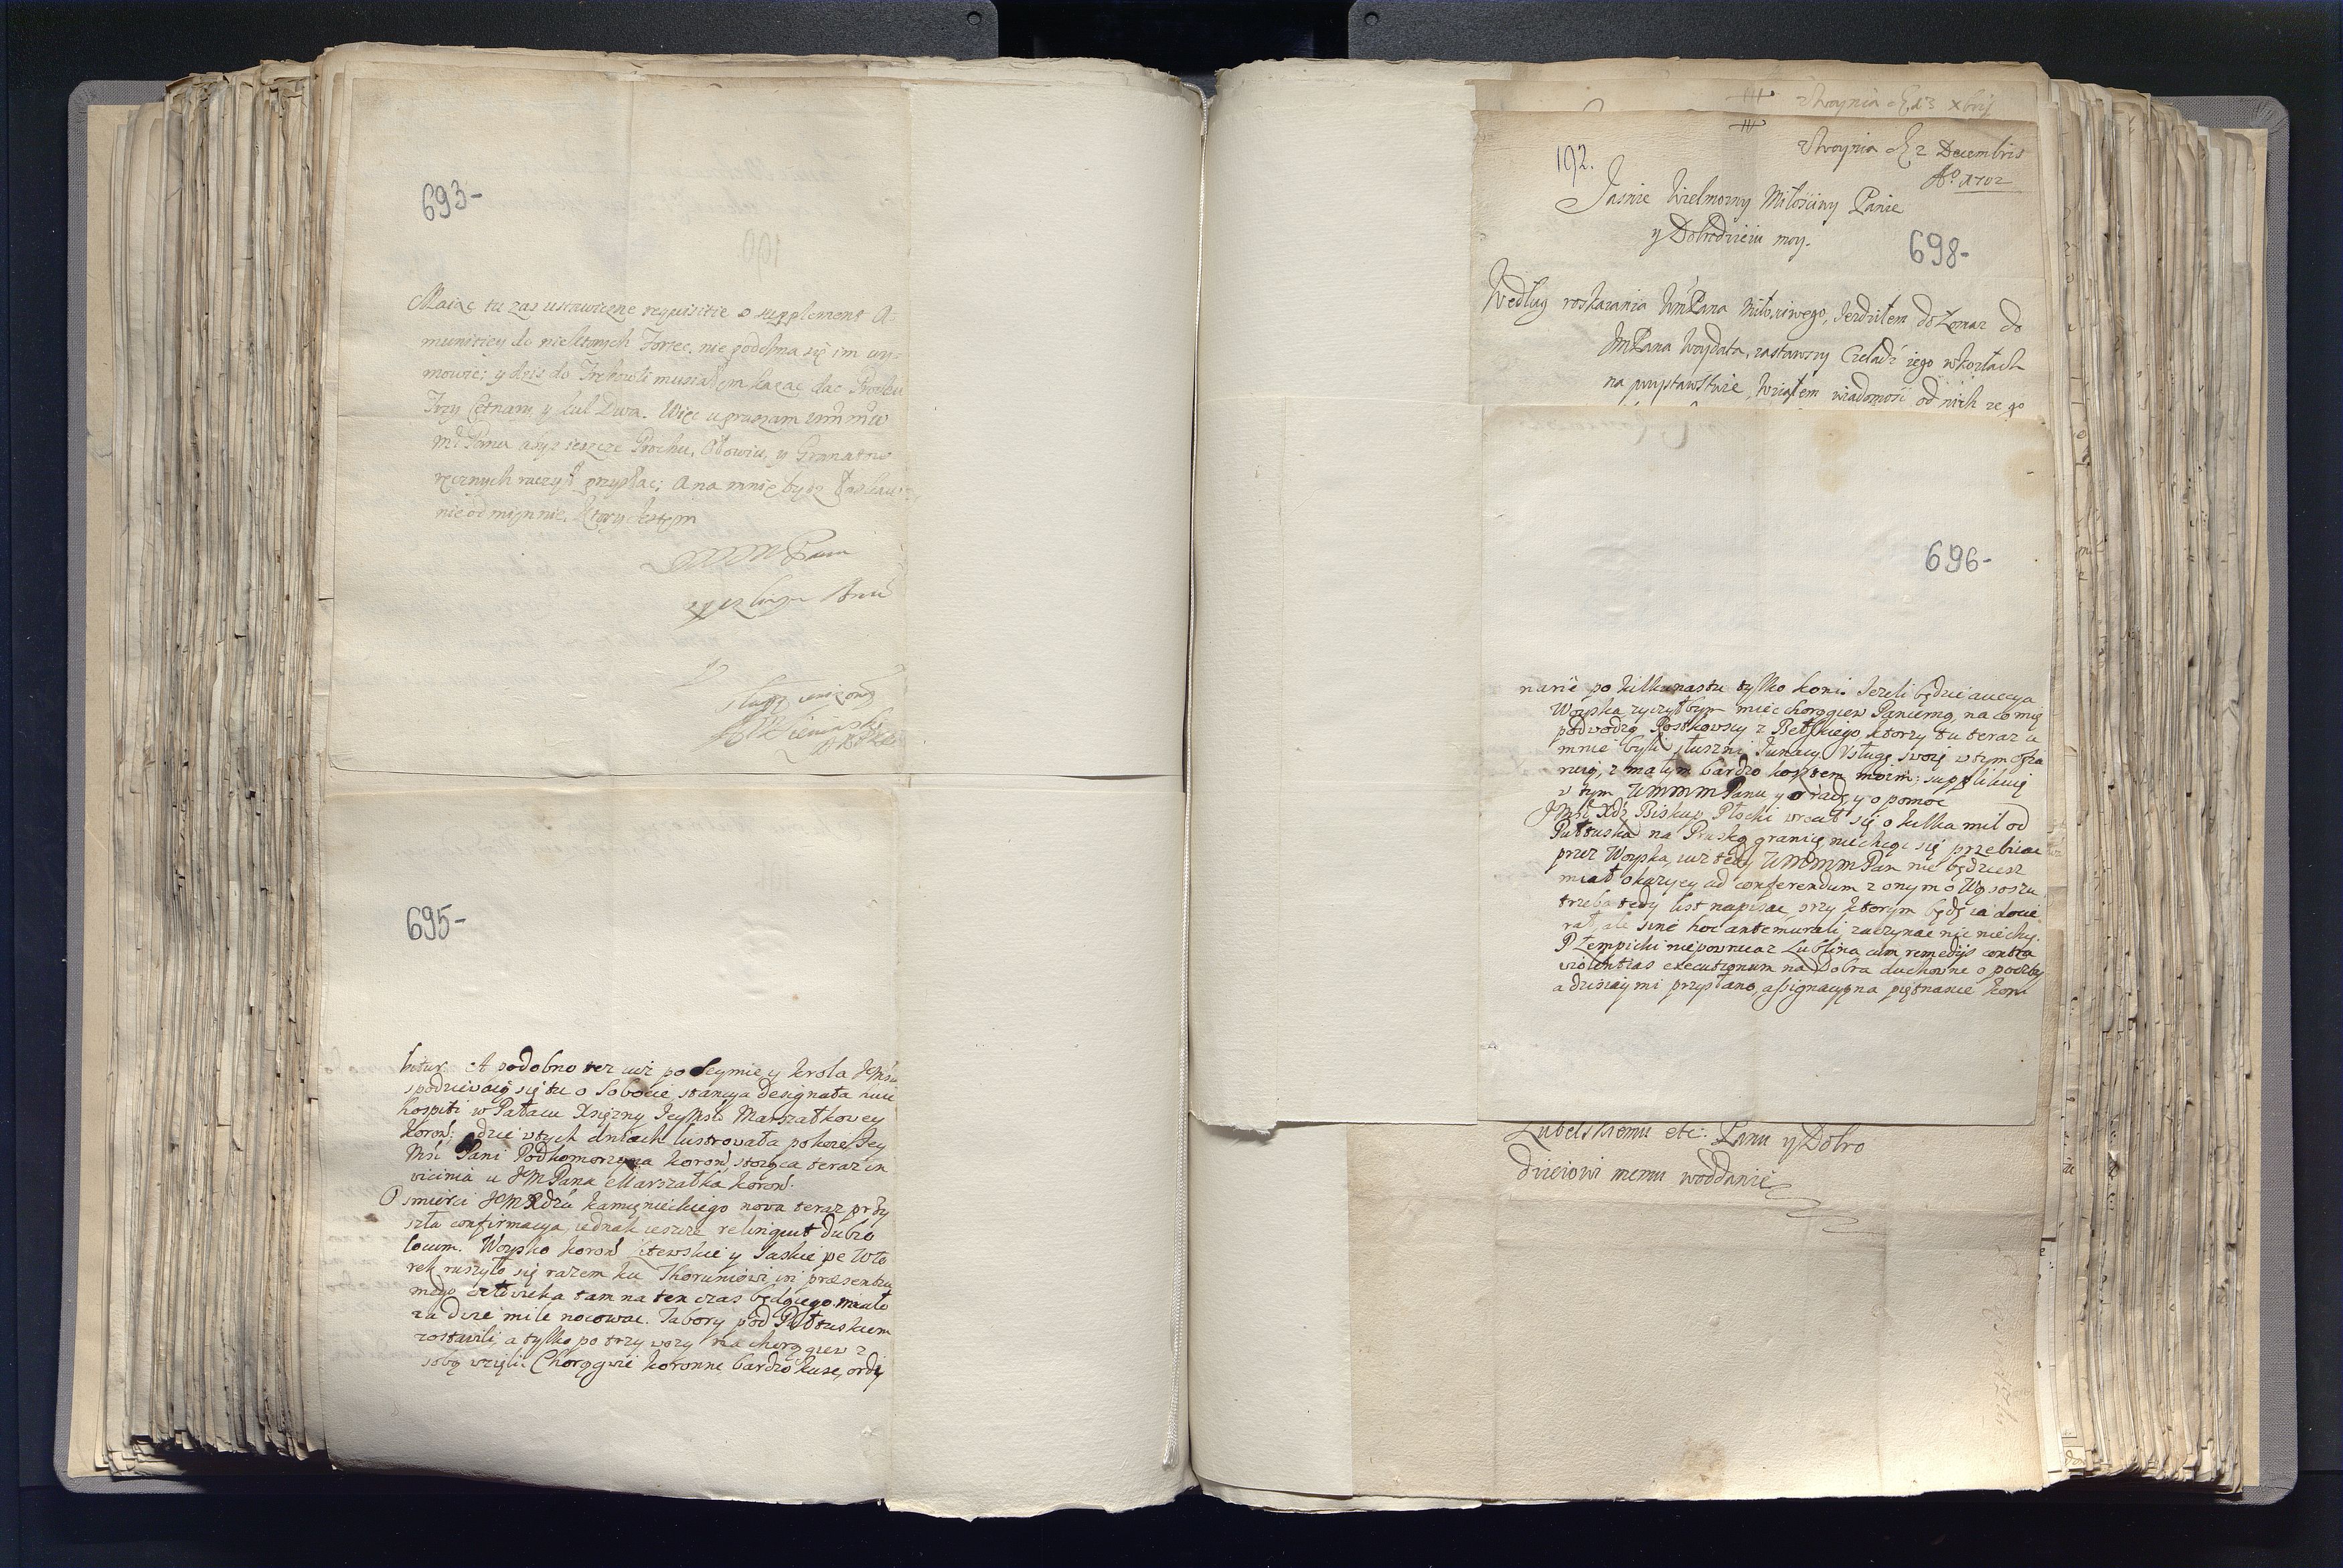 693-
Maiąc tu zas ustawiczne requisitie o supplement A-
municiey do niektorych Fortec, nie podobna się im wy-
mowic; y dzis do musiałem kazac dac Prochu
Trzy Cetnary, y kul Dwa. Więc upraszam
Pana abys ieszcze Prochu, Ołowiu, y Granatow
ręcznych raczył przysłac; A na mnie bydz łaskaw
nieodmiennie, ktory iestem
Pana
sługą unizonym
695-
bitur. A podobno tez iuz po Seymie y krola JKMsci
spodziewaią się tu o Sobocie, stancya designata
hospiti w Pałacu Xięzny Jeymsci Marszałkowey
koron: gdzie w tych dniach lustrowała pokoie Jey
Msc Pani Podkomorzyna koron, stoiąca teraz in
vicinia u JM Pana Marszałka koron.
O smierci JMXdza kamienieckiego nowa teraz przy
szła confirmacya, iednak ieszcze relinquit dubio
locum. Woysko koron Litewskie y Saskie we Wto
rek ruszyło się razem ku Thoruniowi in præsentia
mego człowieka tam na ten czas będącego miało
za dwie mile nocowac. Tabory pod Pułtuskiem
zostawili, a tylko po trzy wozy na chorągiew z
sobą wzięli: Chorągwie koronne bardzo kuse, ordy
zwoynia d. 13 xbris
zwoynia d. 2 Decembris
Aº 1702
192.
Jasnie Wielmozny Miłosciwy Panie
y Dobrodzieiu moy.
698-
Według roskazania WmPana Miłosciwego, Jezdziłem do Łomaz do
JmPana Woydata, zastawszy Czeladz iego w kozłach
na przystawstwie, wziąłem wiadomosc od nich ze go
696-
narie po kilkunastu tylko koni. Jezeli będzie auccya
Woyska zyczyłbym miec chorągiew Pancerną, na co mię
podwodzą Rostkowscy z Bełskiego, ktorzy tu teraz u
mnie byli, słuszni Junacy Usługę swoię w tym ofia
ruią, z małym bardzo kosztem moim; supplikuię
w tym WMMMPanu y o radę y o pomoc
JMSC Xdz Biskup Płocki wrocił się o kilka mil od
Pułtuska na Pruską granicę niechcąc się przebiiac
przez Woyska, iuz tedy WMMMPan nie będziesz
miał okazyey ad conferendum z onym o Wąsoszu
trzeba tedy list napisac, przy ktorym będę ia docie
rał, ale sine hoc antemurali zaczynac nic niechcę.
P Łempicki niepowrucaz Lublina cum remedijs contra
violentias executionum na Dobra duchowne o poczty
a dzisiay mi przysłano, assignacyą na piętnascie koni
Lubelskiemu etc: Panu y Dobro
dzieiowi memu w oddanie